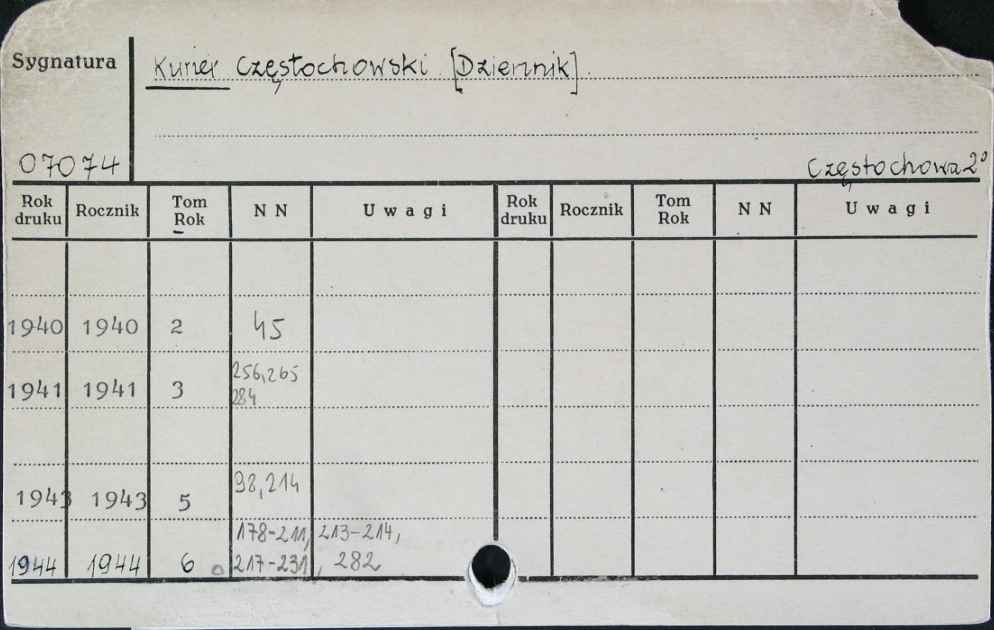 Sygnatura
Kurier Częstochowski [Dziennik].
07074
Częstochowa 2°
Rok druku Rocznik Tom Rok NN Uwagi Rok druku Rocznik Tom Rok NN Uwagi
1940 1940 2 45
1941 1941 3 256,265
284
1943 1943 5 98,214
178-211, 213-214,
1944 1944 6 217-231, 282